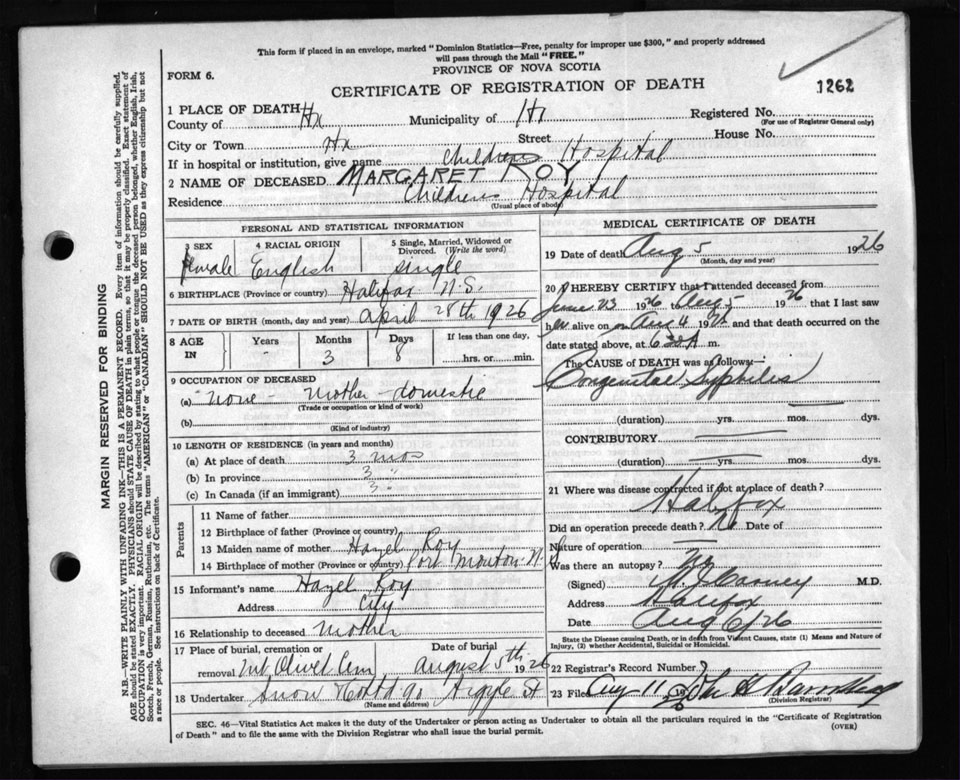 This form if placed in an envelope, marked "Dominion Statistics—Free, penalty for improper use $300," and properly addressed
will pass through the Mail "FREE."
FORM 6.
PROVINCE OF NOVA SCOTIA
CERTIFICATE OF REGISTRATION OF DEATH
1262
1 PLACE OF DEATH
County of Hx Municipality of Hx Registered No.
(For use of Registrar General only)
City or Town Hx Street House No.
If in hospital or institution, give name Childrens Hospital
2 NAME OF DECEASED MARGARET ROY
Residence Childrens Hospital
(Usual place of abode)
PERSONAL AND STATISTICAL INFORMATION
3 SEX 4 RACIAL ORIGIN 5 Single, Married, Widowed or Divorced. (Write the word)
female English single
6 BIRTHPLACE (Province or country) Halifax N.S.
7 DATE OF BIRTH (month, day and year) April 28th 1926
8 AGE IN Years Months Days If less than one day,
- 3 8 hrs. or min.
9 OCCUPATION OF DECEASED
(a) None - Mother - domestic
(Trade or occupation or kind of work)
(b)
(Kind of industry)
10 LENGTH OF RESIDENCE (in years and months)
(a) At place of death 3 mos
(b) In province 3 "
(c) In Canada (if an immigrant) 3 "
Parents
11 Name of father
12 Birthplace of father (Province or country)
13 Maiden name of mother Hazel Roy
14 Birthplace of mother (Province or country) Port Mouton N.S
15 Informant's name Hazel Roy
Address City
16 Relationship to deceased Mother
17 Place of burial, cremation or removal Mt Olivet Cem Date of burial August 5th 1926
18 Undertaker Snow Argyle St
(Name and address)
MEDICAL CERTIFICATE OF DEATH
19 Date of death Aug 5 1926
(Month, day and year)
20 I HEREBY CERTIFY that I attended deceased from
June 23 1926 to Aug 5 1926 that I last saw
her alive on Aug 4 1926 and that death occurred on the
date stated above, at m.
The CAUSE of DEATH was as follows:
Congenital Syphilis
(duration) yrs. mos. dys.
CONTRIBUTORY
(duration) yrs. mos. dys.
21 Where was disease contracted if not at place of death?
Halifax
Did an operation precede death? No Date of
Nature of operation
Was there an autopsy? No
(Signed) Carney M.D.
Address Halifax
Date Aug 6/26
State the Disease causing Death, or in death from Violent Causes, state (1) Means and Nature of
Injury, (2) whether Accidental, Suicidal or Homicidal.
22 Registrar's Record Number
23 Filed Aug 11 1926 John
(Division Registrar)
SEC. 46—Vital Statistics Act makes it the duty of the Undertaker or person acting as Undertaker to obtain all the particulars required in the "Certificate of Registration
of Death" and to file the same with the Division Registrar who shall issue the burial permit.
(OVER)
MARGIN RESERVED FOR BINDING
N.B.—WRITE PLAINLY WITH UNFADING INK—THIS IS A PERMANENT RECORD. Every item of information should be carefully supplied.
AGE should be stated EXACTLY. PHYSICIANS should STATE CAUSE OF DEATH in plain terms, so that it may be properly classified. Exact statement of
OCCUPATION is very important. RACIAL ORIGIN will be described by stating to what people or tongue the deceased person belonged, whether English, Irish,
Scotch, French, German, Russian, Ruthenian, etc. The terms "AMERICAN" or "CANADIAN" SHOULD NOT BE USED as they express citizenship but not
a race or people. See instructions on back of Certificate.